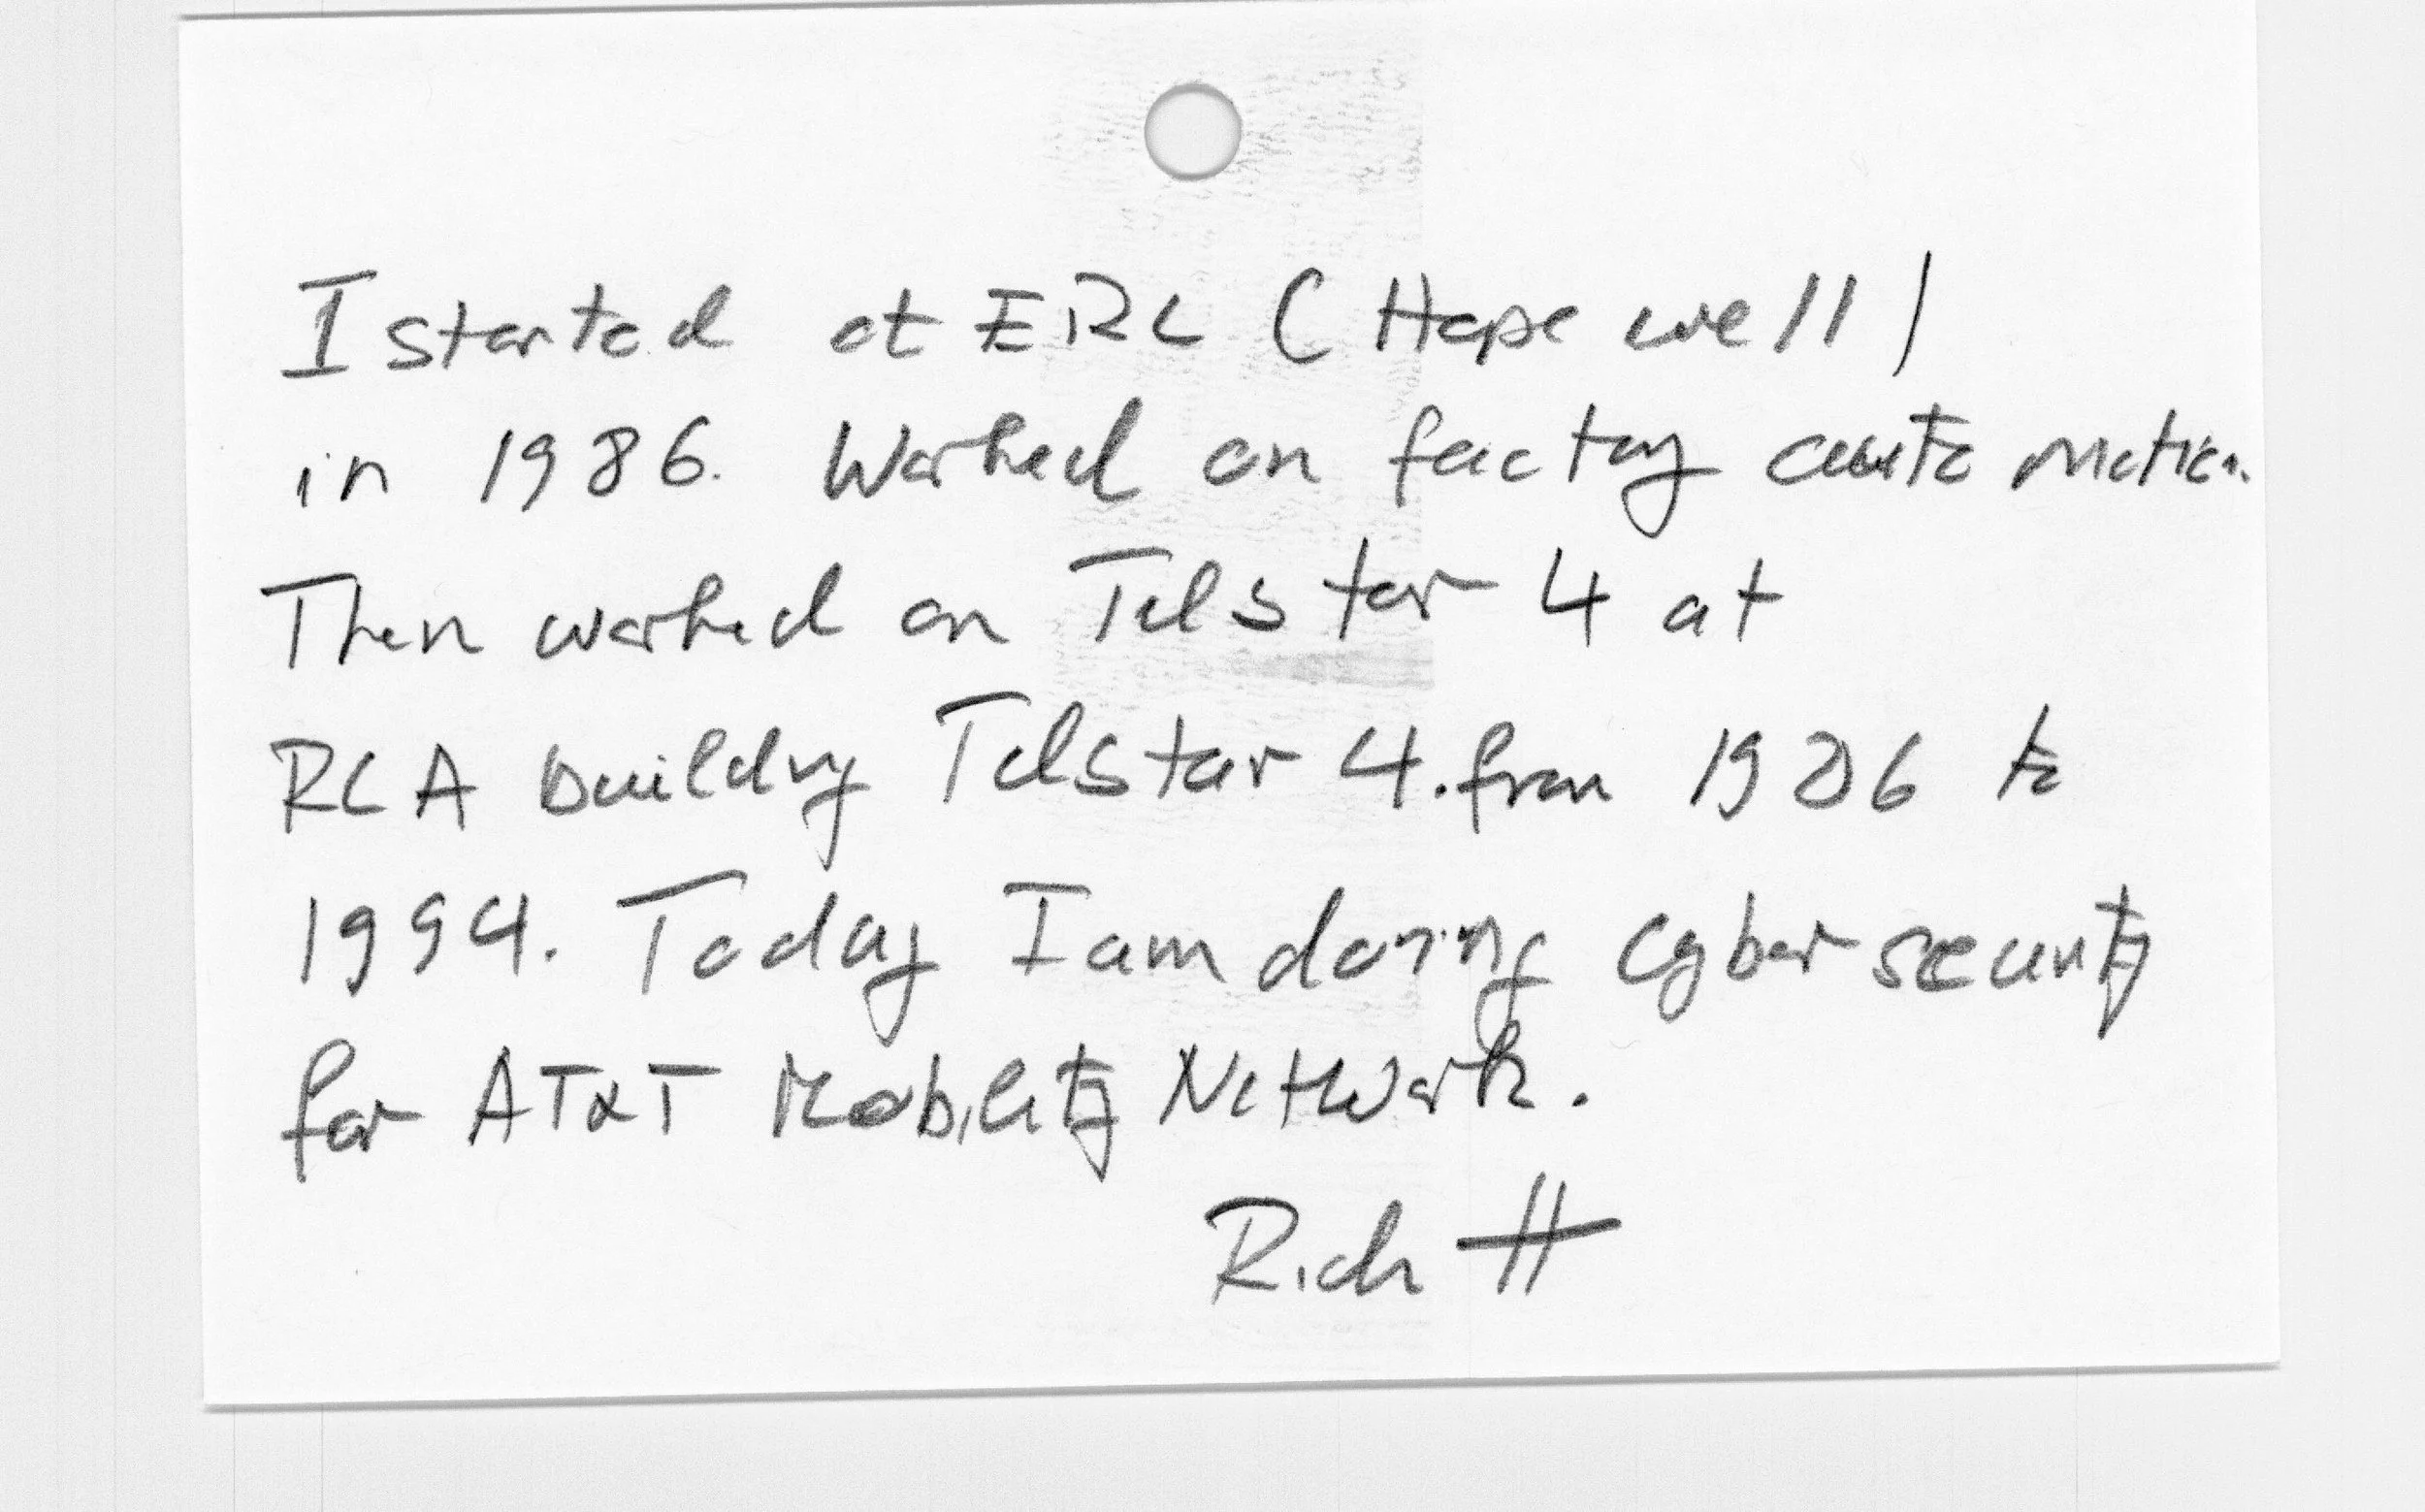 I started at ERC (Hopewell)
in 1986. Worked on factory automation.
Then worked on Telstar 4 at
RCA building Telstar 4. from 1986 to
1994. Today I am doing cyber security
for AT&T Mobility Network.
Rich H